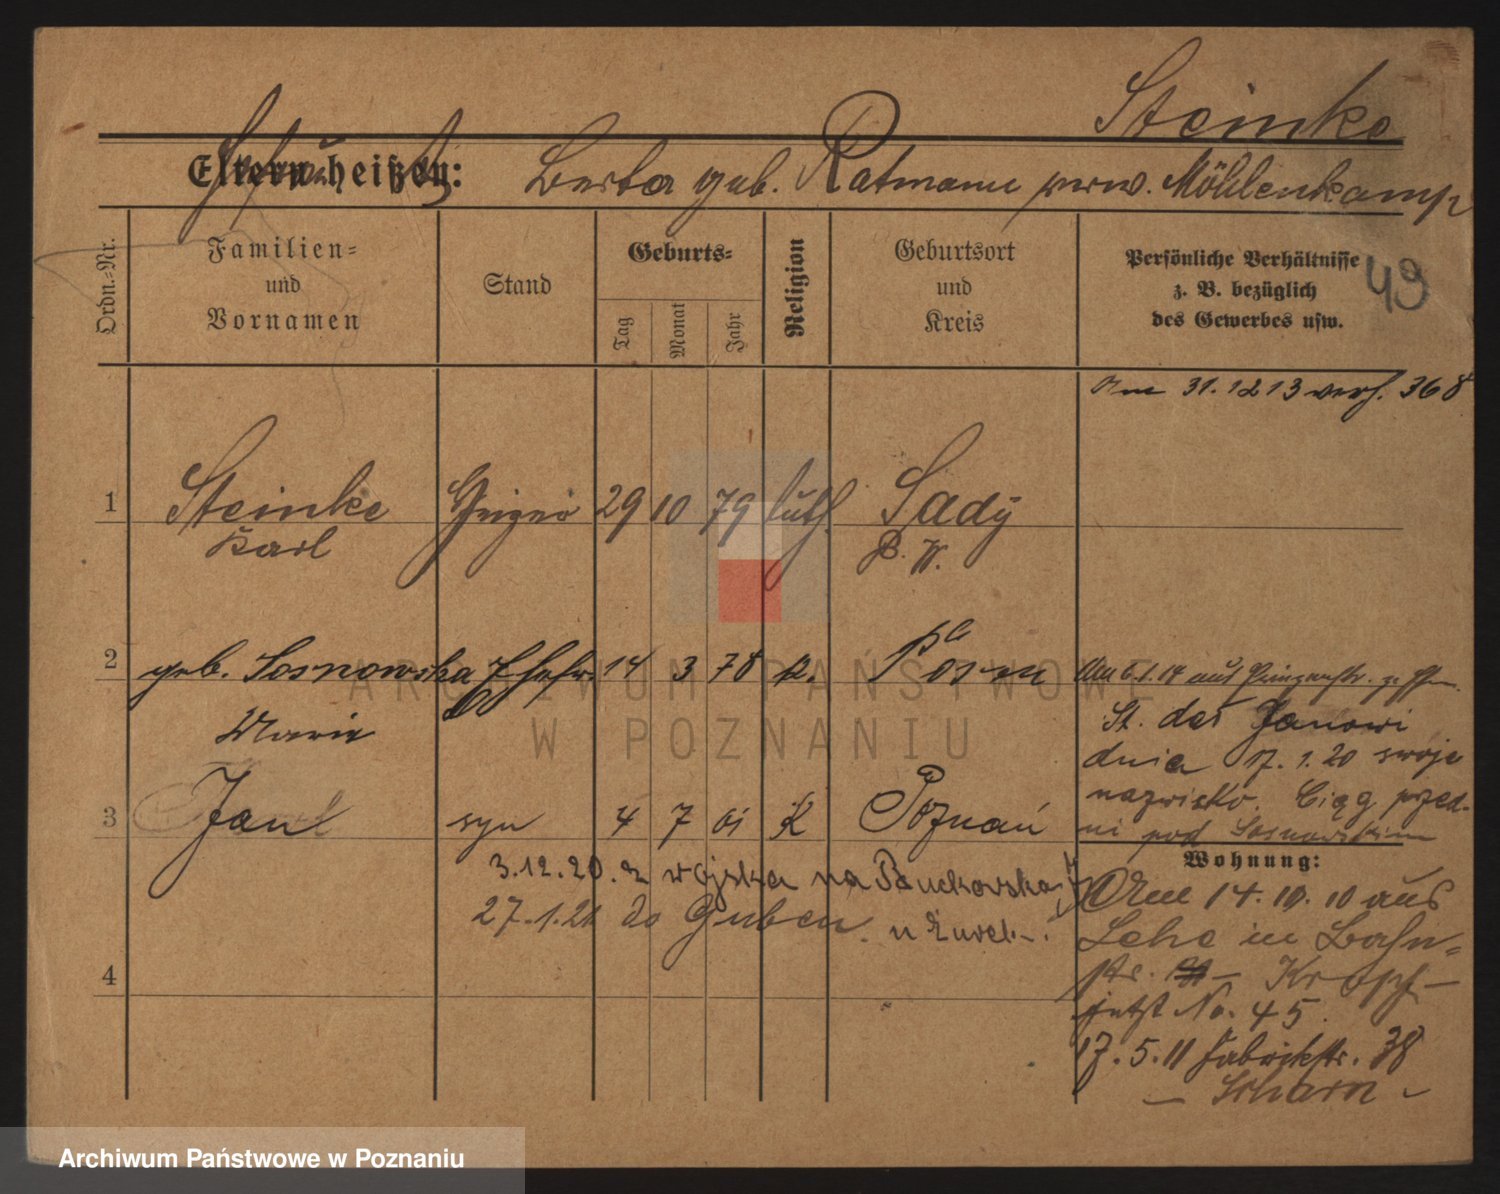 Steinke
Eltern heißen: Berta geb. Ratmann verw. Möhlenkamp
Ordn.-Nr.
Familien-
und
Vornamen
Stand
Geburts-
Tag
Monat
Jahr
Religion
Geburtsort
und
Kreis
Persönliche Verhältnisse
z. B. bezüglich
des Gewerbes usw.
49
31.12 13 verh. 368
1 Steinke 29 10 79 luth. Sady
Karl P. W.
2 geb. Sosnowska Ehefr. 14 3 78 k. Posen
Marie
Am 6.1.14 aus
St. dał Janowi
dnia 17.1.20 swoje
nazwisko. Ciąg przed-
ni pod Sosnowskim
3 Jan syn 4 7 01 K Poznań
3.12.20. z wojska na Buckowska
27.1.21 do Guben.
4
Wohnung:
Am 14.10.10 aus
Lehe in Bahn-
str. — Kropf —
jetzt No. 45.
17.5.11 Fabrikstr. 38
— Scharn —
ARCHIWUM PAŃSTWOWE
W POZNANIU
Archiwum Państwowe w Poznaniu